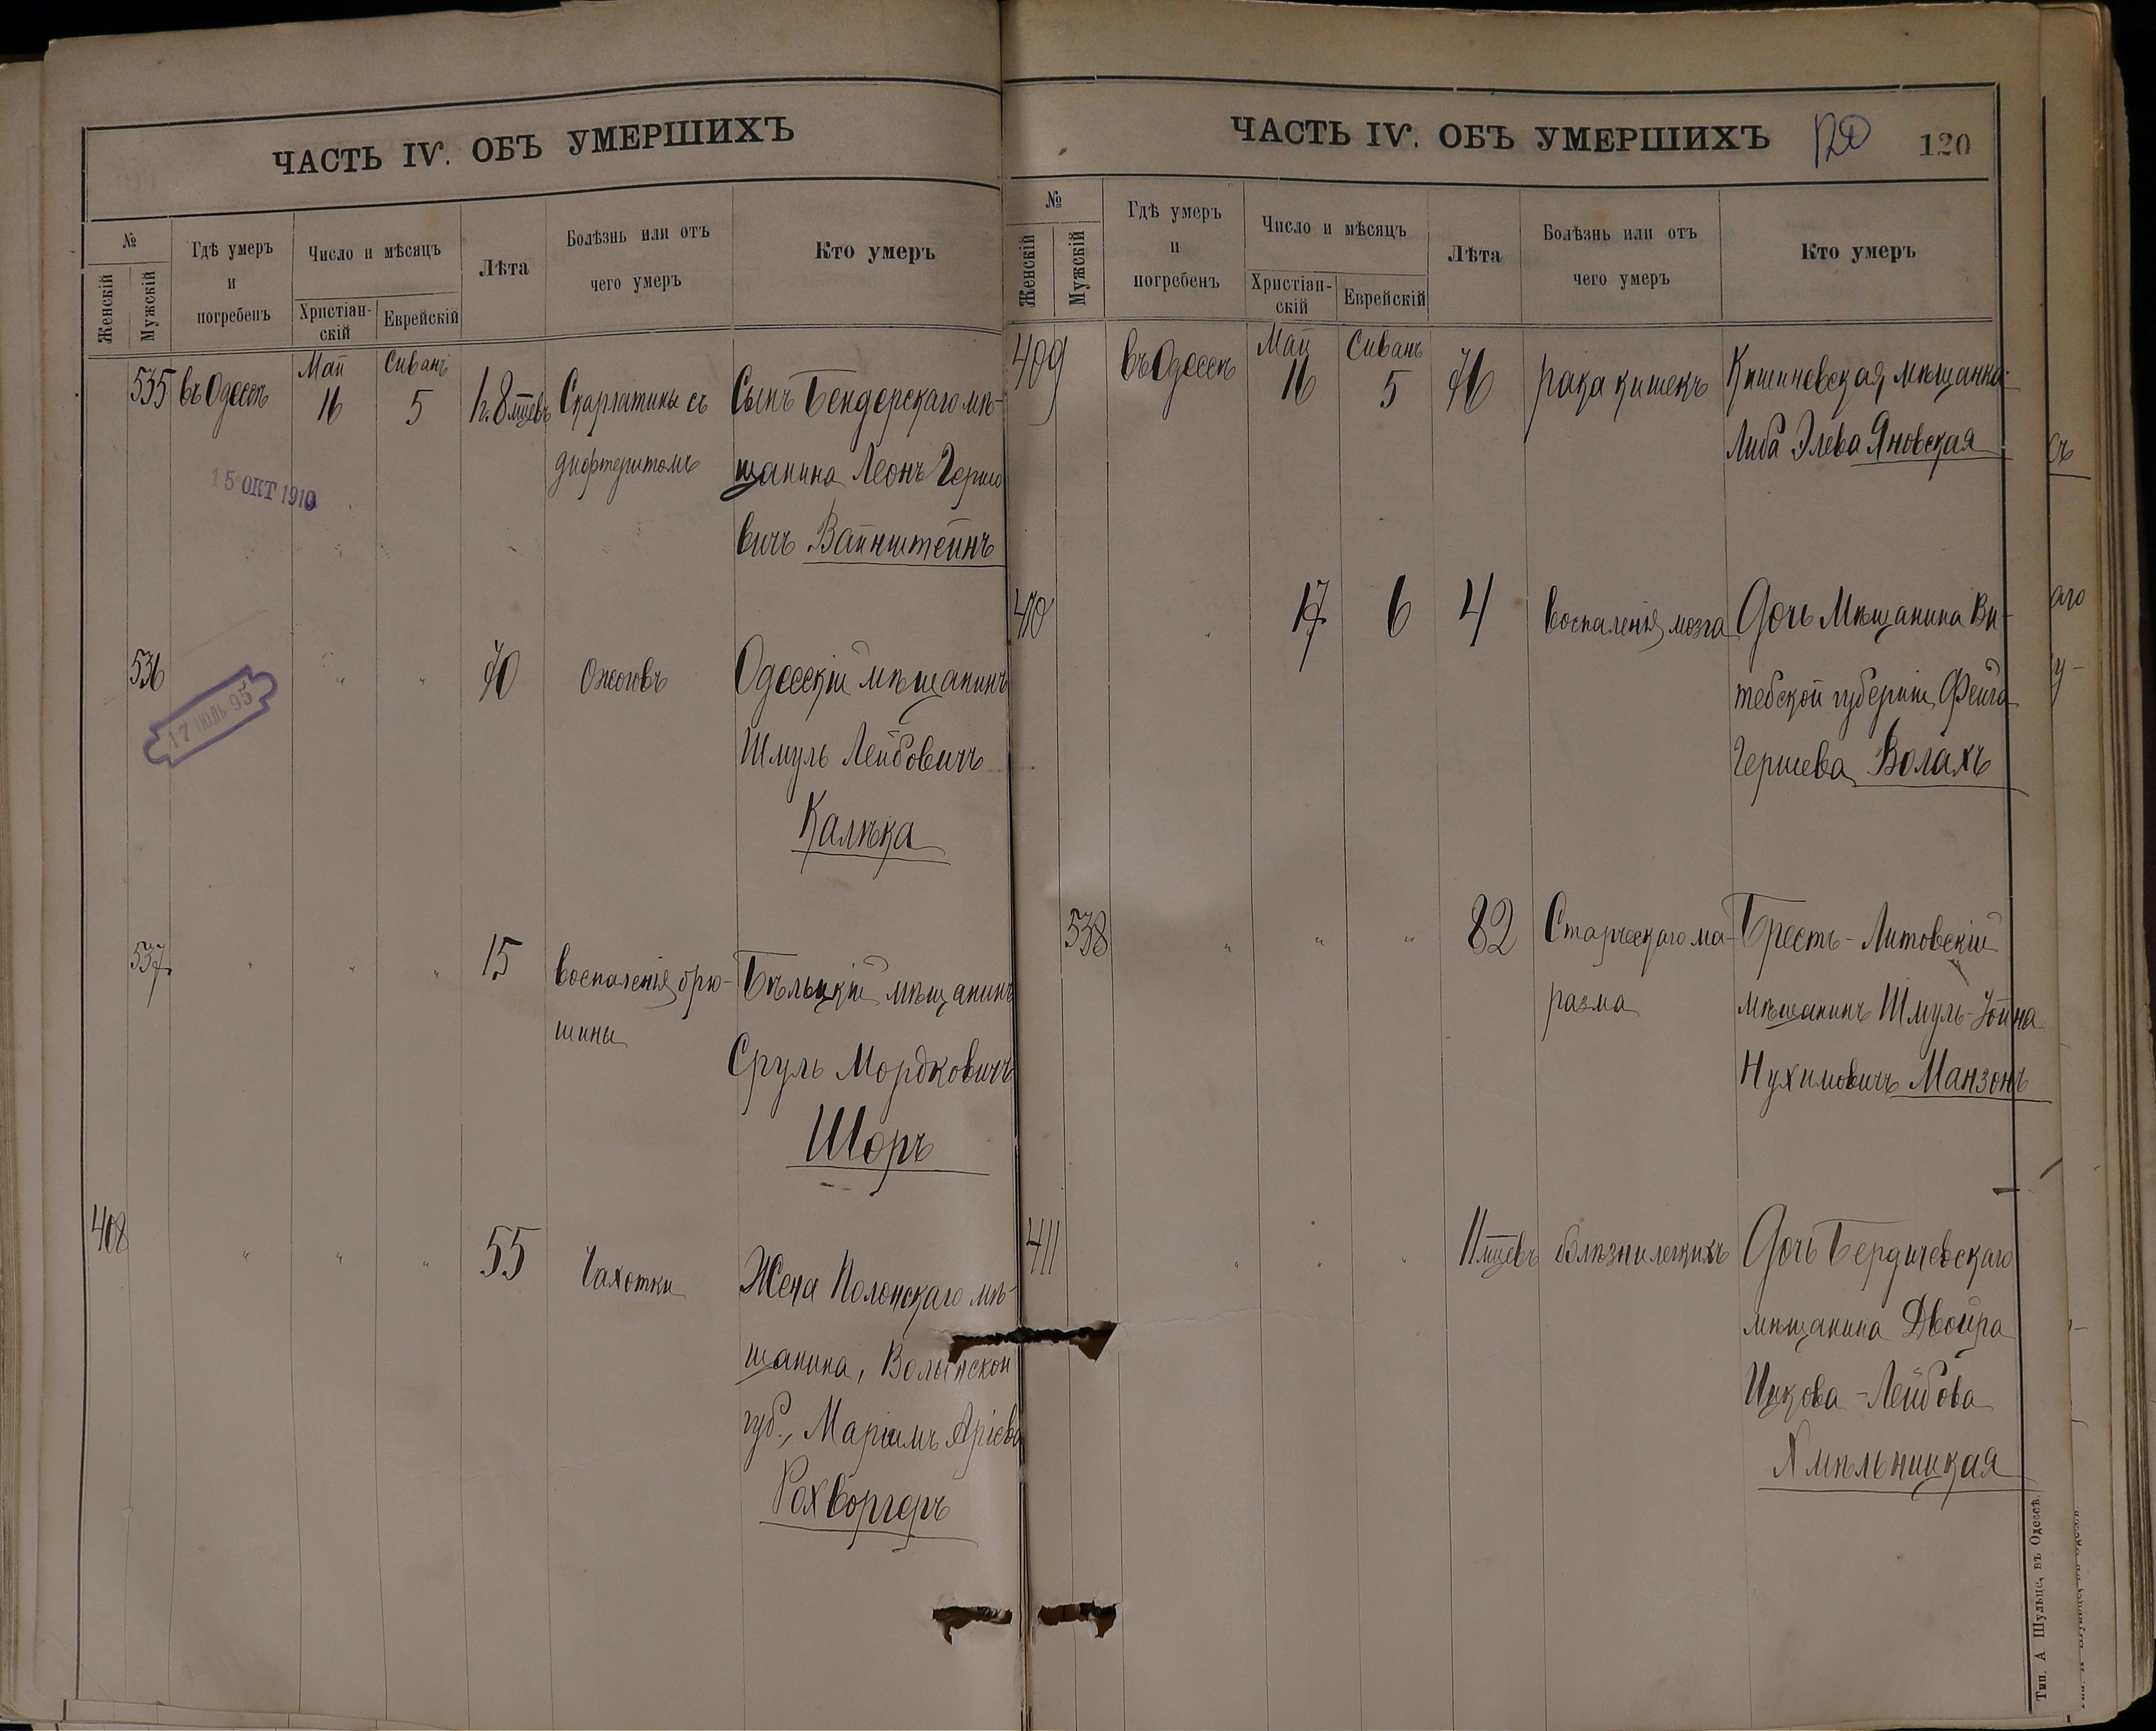 ЧАСТЬ IV. ОБЪ УМЕРШИХЪ
№
Женскій
Мужскій
Гдѣ умеръ
и
погребенъ
Число и мѣсяцъ
Христіан-
скій
Еврейскій
Лѣта
Болѣзнь или отъ
чего умеръ
Кто умеръ
535 въ Одессѣ Май 16 Сиванъ 5 Скарлатины съ Сынъ Бендерскаго мѣ-
дифтеритомъ щанина Леонъ
15 ОКТ 1910
вичъ Вайнштейнъ
536 " " 70 Ожоговъ Одесскій мѣщанинъ
17 ІЮЛЬ 95
Шмуль Лейбовичъ
Калѣка
537 " " " 15 воспаленія брю- Бѣльцкій мѣщанинъ
шины
Сруль Мордковичъ
Шоръ
408 " " " 55 Чахотки Жена Полонскаго мѣ-
щанина, Волынской
губ., Маріимъ Аріева
Рохворгеръ
ЧАСТЬ IV. ОБЪ УМЕРШИХЪ 120 120
№
Женскій
Мужскій
Гдѣ умеръ
и
погребенъ
Число и мѣсяцъ
Христіан-
скій
Еврейскій
Лѣта
Болѣзнь или отъ
чего умеръ
Кто умеръ
409 въ Одессѣ Май 16 Сиванъ 5 76 рака кишекъ Кишиневская мѣщанка
Либа Элева Яновская
410 " 17 6 4 воспаленія мозга Дочь Мѣщанина Ви-
тебской губерніи Фейга
Гершева Волахъ
538 " " " 82 Старческаго ма- Брестъ-Литовскій
разма мѣщанинъ Шмуль-Іойна
Нухимовичъ Манзонъ
411 " " " 11 мѣсцевъ болѣзни легкихъ Дочь Бердичевскаго
мѣщанина Двойра
Ицкова-Лейбова
Хмѣльницкая
Тип. А Шульце, въ Одессѣ.